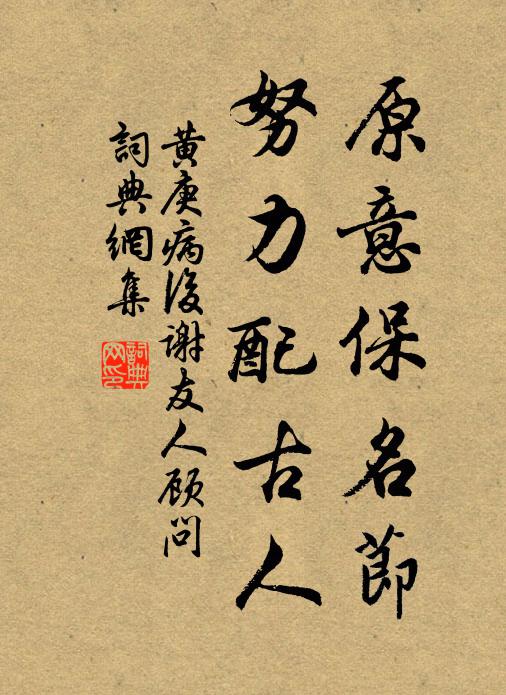 原意保名節
努力配古人
黄庚病後谢友人顾問
詞典網集
詞典網印